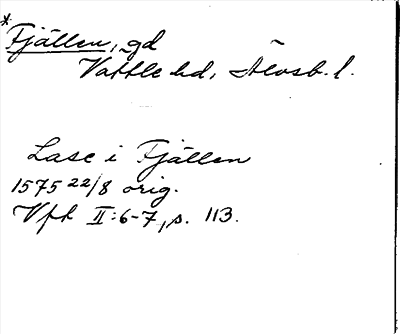 * Fjällen, gd
Vättle hd, Älvsb. l.
Lasc i Fjällen
1575 22/8 orig.
Vfh II:6-7, s. 113.